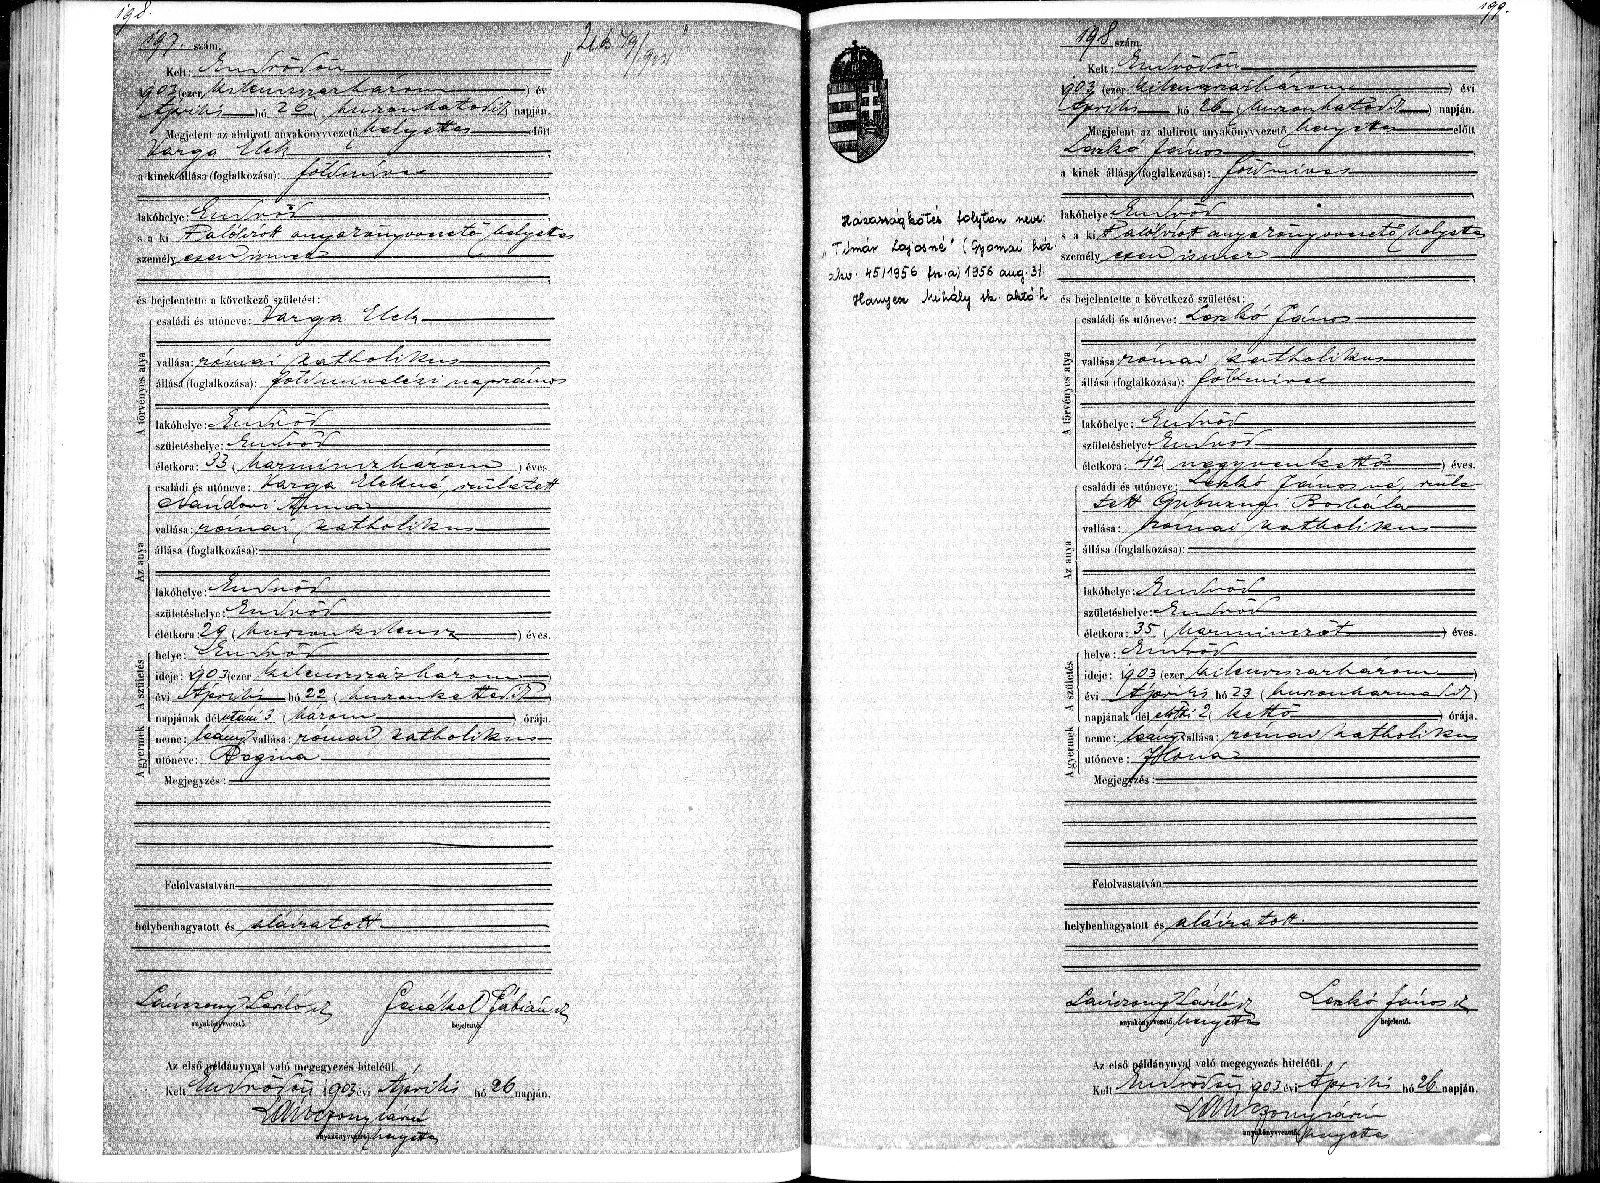 198.
197. szám.
Kelt: Endrődön
1903 (ezer kilenczszázhárom) évi
Április hó 26 (huszonhatodik) napján.
Megjelent az alulirott anyakönyvvezető helyettes előtt
Varga Elek
a kinek állása (foglalkozása): földmíves
lakóhelye: Endrőd
s a ki alólirott anyakönyvvezető helyettes
személyesen ismer
és bejelentette a következő születést:
A törvényes atya
családi és utóneve: Varga Elek
vallása: római katholikus
állása (foglalkozása): földmivelési napszámos
lakóhelye: Endrőd
születéshelye: Endrőd
életkora: 33 (harminczhárom) éves.
Az anya
családi és utóneve: Varga Elekné, született
Nándori Anna
vallása: római katholikus
állása (foglalkozása):
lakóhelye: Endrőd
születéshelye: Endrőd
életkora: 29 (huszonkilencz) éves.
A születés
helye: Endrőd
ideje: 1903 (ezer kilenczszázhárom)
évi Április hó 22 (huszonkettedik)
napjának délutáni 3 (három) órája.
A gyermek
neme: leány vallása: római katholikus
utóneve: Regina
Megjegyzés:
Felolvastatván
helybenhagyatott és aláiratott.
anyakönyvvezető. bejelentő.
Az első példánynyal való megegyezés hiteléül.
Kelt Endrődön 1903 évi Április hó 26 napján.
anyakönyvvezető helyettes
199.
Házasságkötés folytán neve:
"Timár Lajosné" (Gyomai ház.
akv. 45/1956 fsz. a) 1956 aug. 31
Hanyecz Mihály sk. akv.h.
198 szám.
Kelt: Endrődön
1903 (ezer kilenczszázhárom) évi
Április hó 26 (huszonhatodik) napján.
Megjelent az alulirott anyakönyvvezető helyettes előtt
Leszkó János
a kinek állása (foglalkozása): földmíves
lakóhelye: Endrőd
s a ki alólirott anyakönyvvezető helyettes
személyesen ismer
és bejelentette a következő születést:
A törvényes atya
családi és utóneve: Leszkó János
vallása: római katholikus
állása (foglalkozása): földmíves
lakóhelye: Endrőd
születéshelye: Endrőd
életkora: 42 negyvenkettő) éves.
Az anya
családi és utóneve: Leszkó Jánosné, szüle-
tett Gubucznyi Borbála
vallása: római katholikus
állása (foglalkozása):
lakóhelye: Endrőd
születéshelye: Endrőd
életkora: 35 (harminczöt) éves.
A születés
helye: Endrőd
ideje: 1903 (ezer kilenczszázhárom)
évi Április hó 23 (huszonharmadik)
napjának délelőtti 2 (kettő) órája.
A gyermek
neme: leány vallása: római katholikus
utóneve: Ilona
Megjegyzés:
Felolvastatván
helybenhagyatott és aláiratott.
Leszkó János
anyakönyvvezető helyettes bejelentő.
Az első példánynyal való megegyezés hiteléül.
Kelt Endrődön 1903 évi Április hó 26 napján.
anyakönyvvezető helyettes